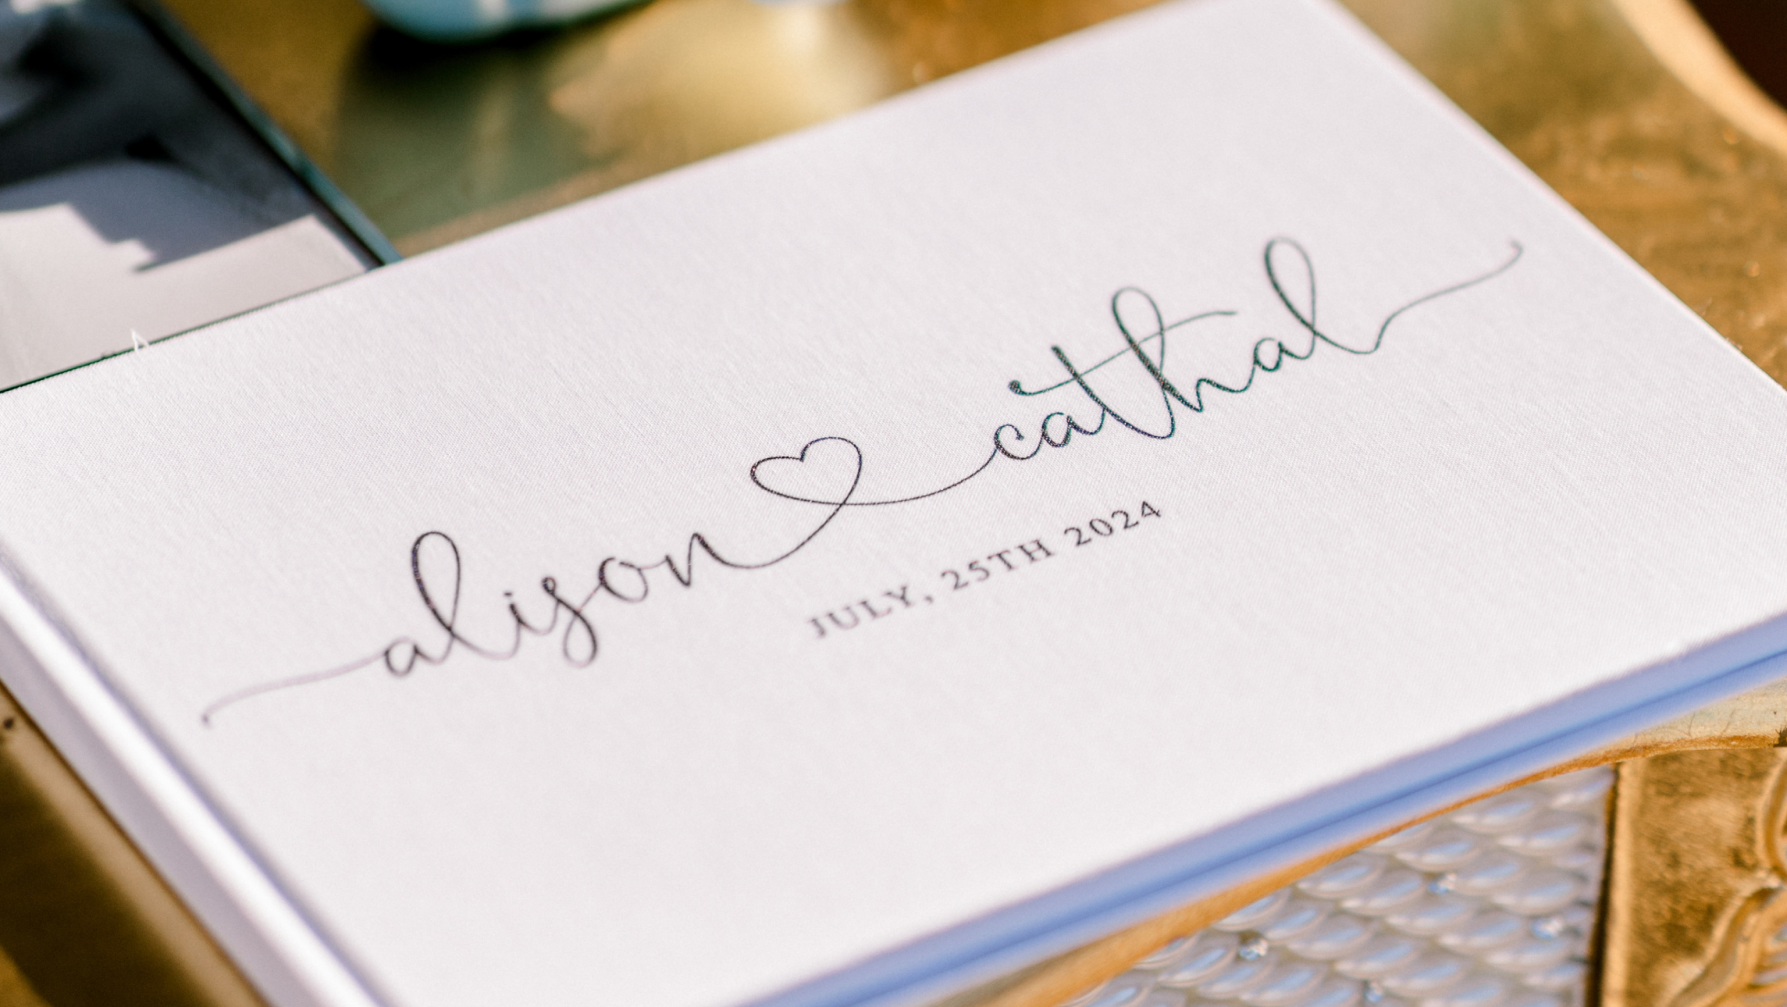 alison cathal
JULY, 25TH 2024